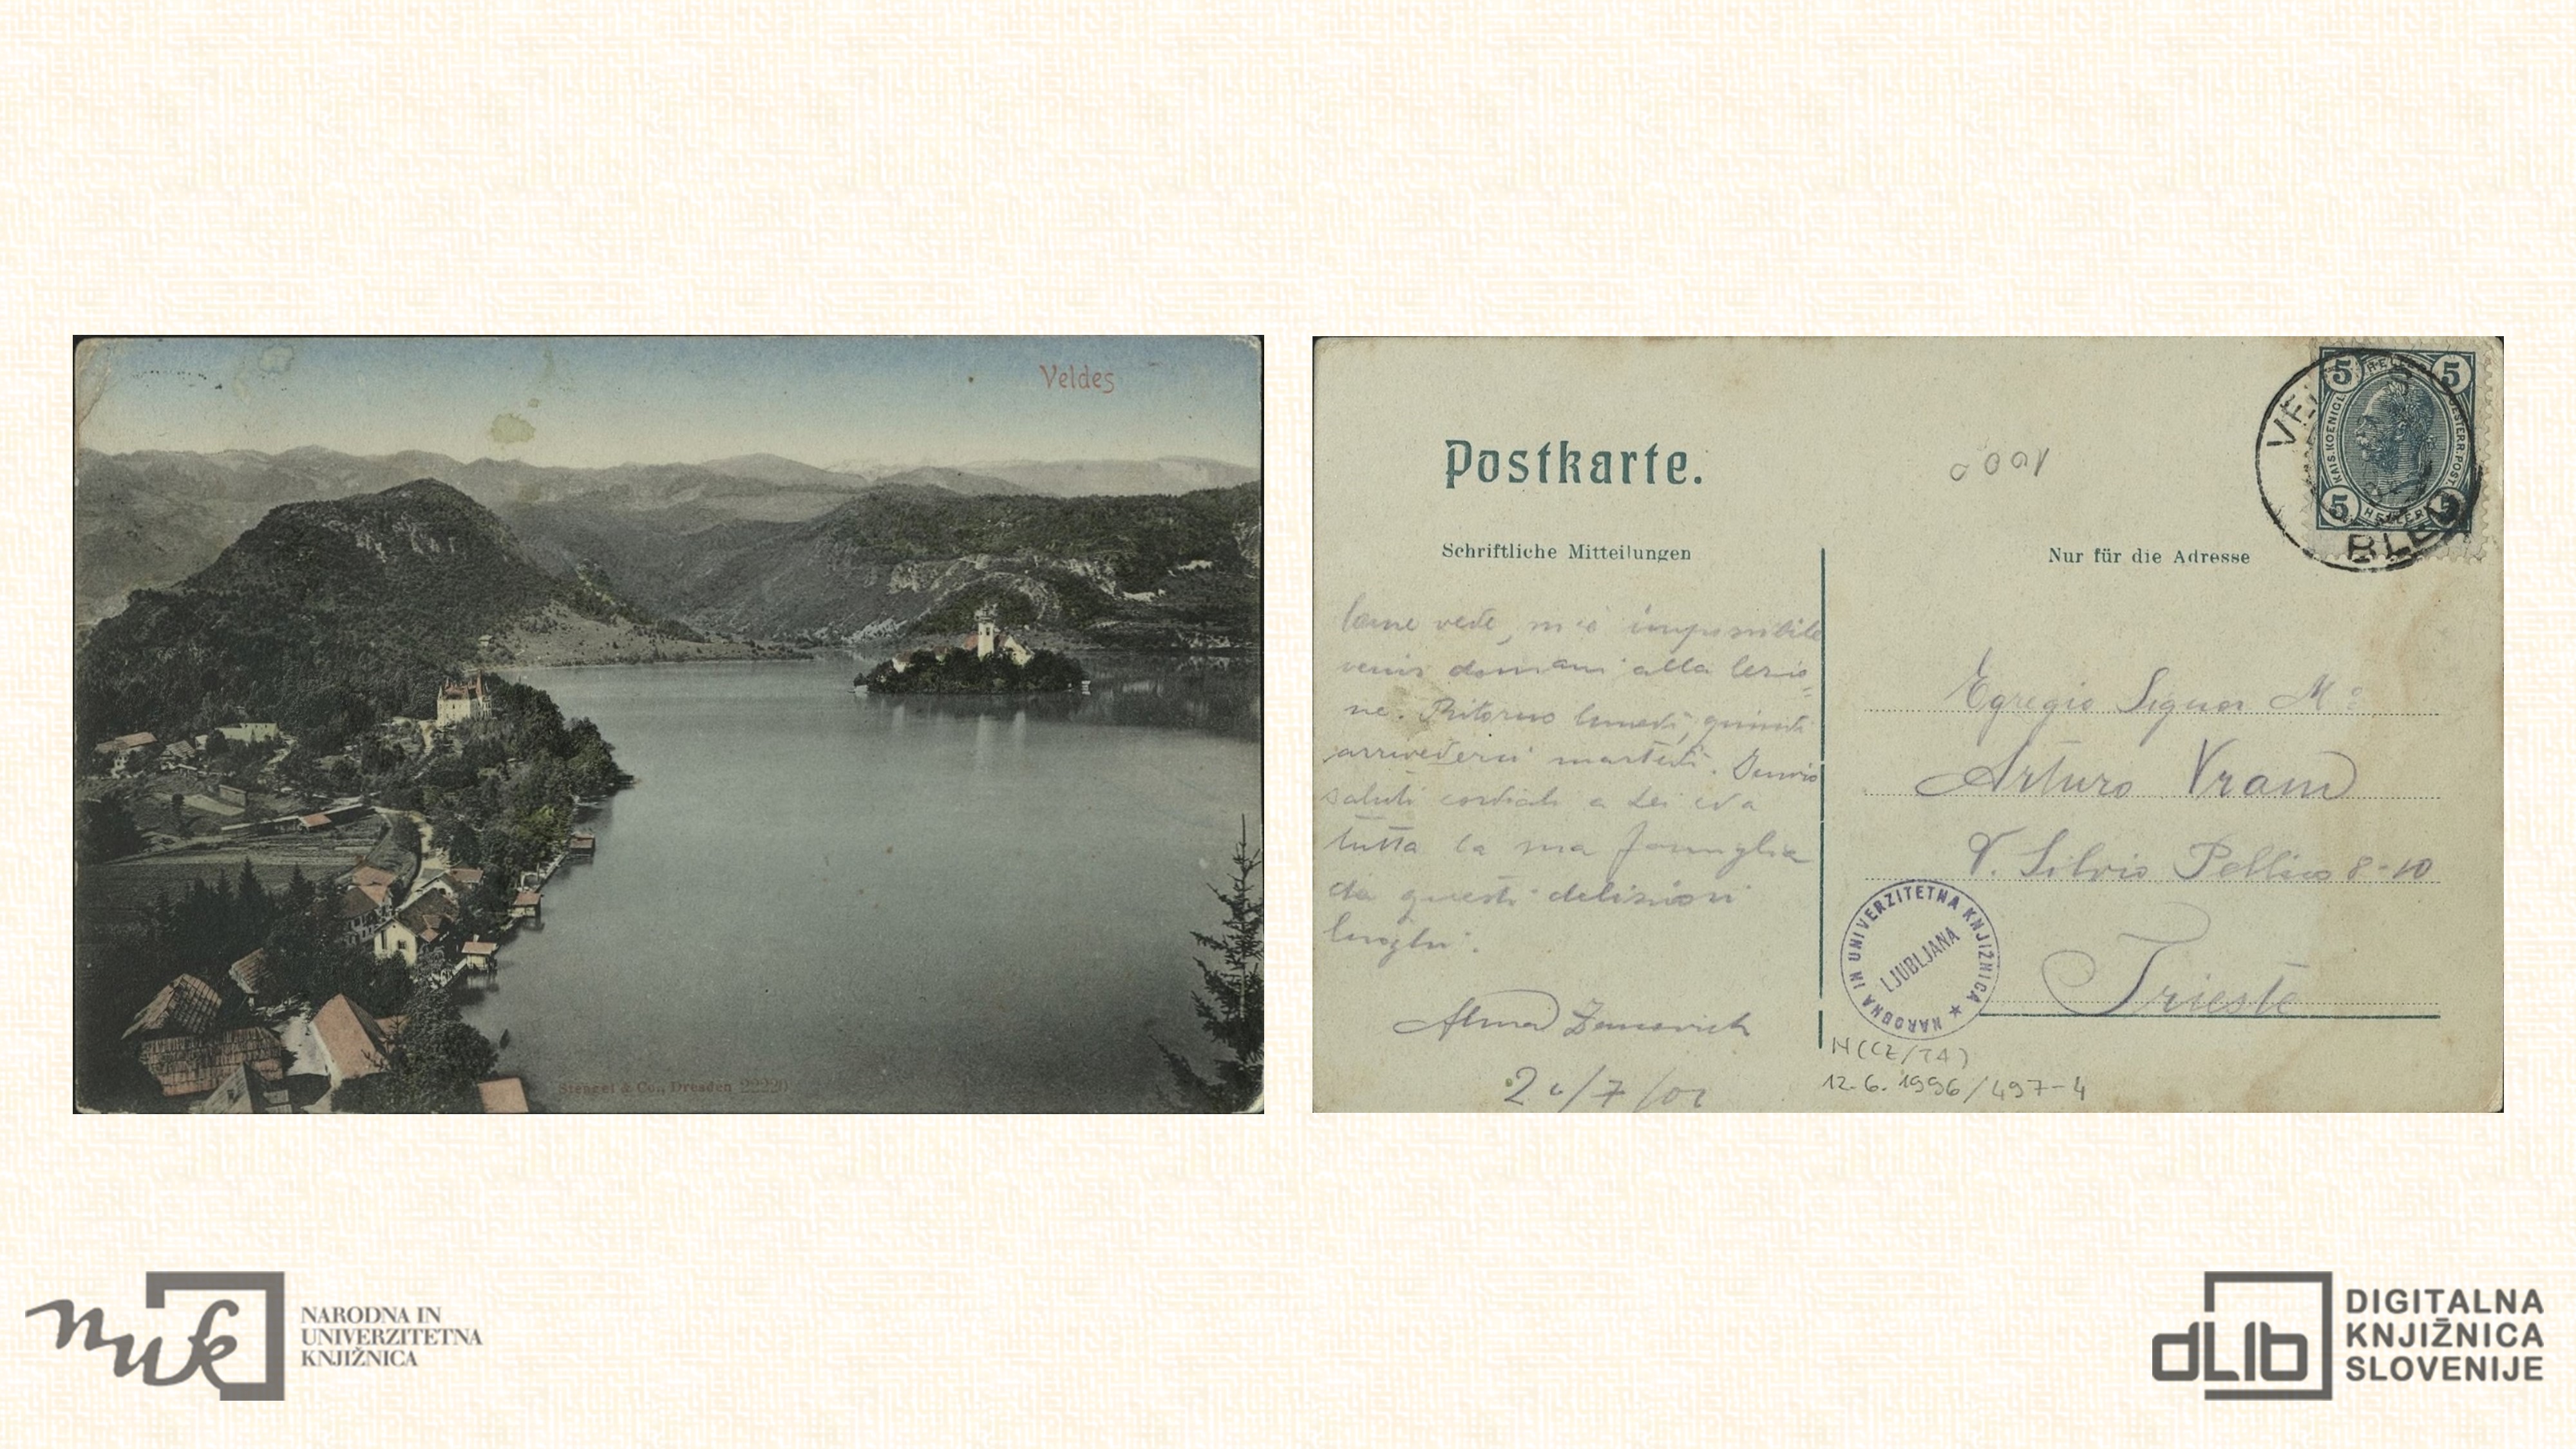 Veldes
Stengel & Co., Dresden 22220
Postkarte.
Schriftliche Mitteilungen
Nur für die Adresse
5 5
KAIS. KOENIGL. OESTERR. POST.
5 HELLER
VELDES
BLED
Come vede, m'è impossibile
venir domani alla lezio=
ne. Ritorno lunedì, quindi
arrivederci martedì. Invio
saluti cordiali a Lei ed a
tutta la sua famiglia
da questi deliziosi
luoghi.
Alma
Egregio Signor M.o
Arturo Vram
V. Silvio Pellico 8-10
Trieste
NARODNA IN UNIVERZITETNA KNJIŽNICA
LJUBLJANA
12.6.1996/497-4
nuk
NARODNA IN
UNIVERZITETNA
KNJIŽNICA
dLib
DIGITALNA
KNJIŽNICA
SLOVENIJE